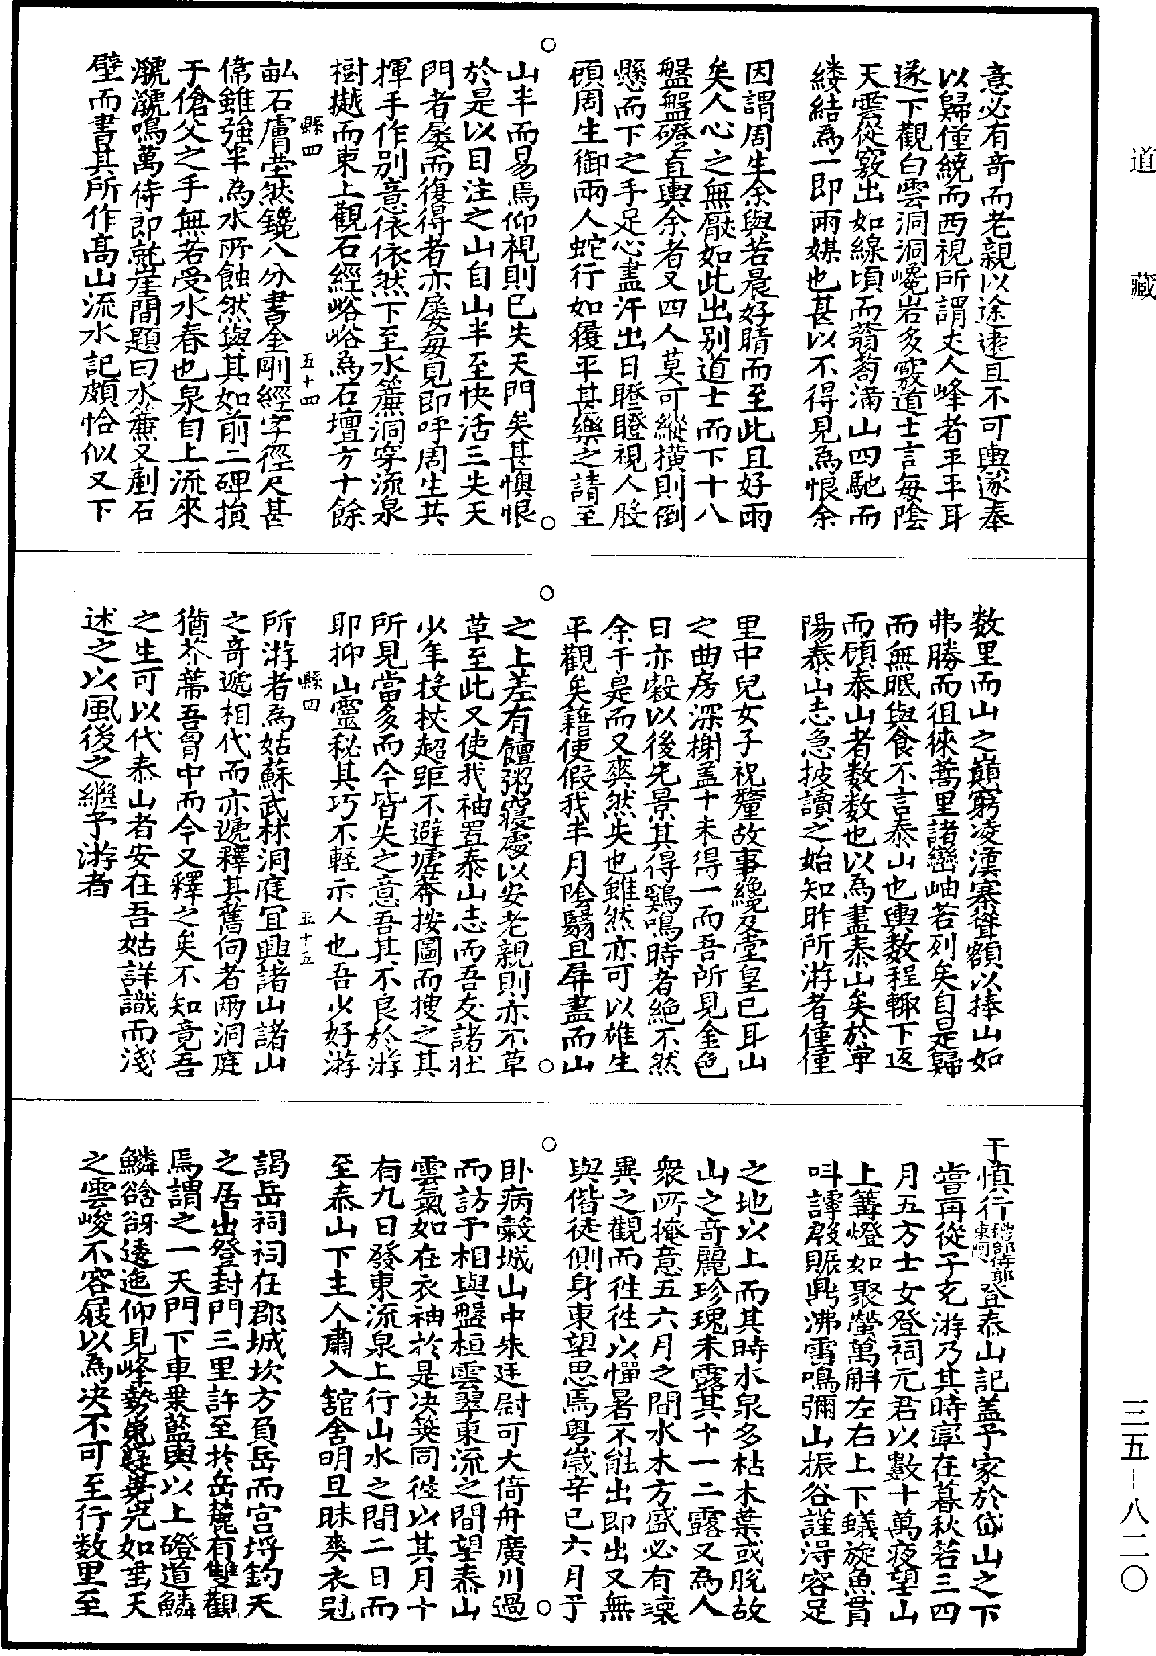 道藏
意必有奇而老親以途遠且不可輿遂奉
以歸僅繞而西視所謂丈人峰者平平耳
遂下觀白雲洞洞巉岩多竅道士言每陰
天雲從竅出如線頃而蓊蓊滿山四馳而
縷結為一即雨媒也甚以不得見為恨余
因謂周生余與若晨好晴而至此且好雨
矣人心之無厭如此出别道士而下十八
盤盤磴直輿余者又四人莫可縱横則倒
懸而下之手足心盡汗出日瞪瞪視人股
頭周生御兩人蛇行如履平甚樂之請至
山半而易焉仰視則已失天門矣甚懊恨
於是以目注之山自山半至快活三失天
門者屡而復得者亦屡每見即呼周生共
揮手作别意依依然下至水簾洞穿流泉
樹樾而東上觀石經峪峪為石壇方十餘
畝石膚瑩然鑱八分書金剛經字徑尺甚
偉雖強半為水所蝕然與其如前二碑損
于傖父之手無若受水舂也泉自上流來
㶁㶁鳴萬侍郎就崖間題曰水簾又剷石
壁而書其所作高山流水記頗恰似又下
縣四
五十四
数里而山之巔窮凌漢搴聳額以捧山如
弗勝而徂徠蒿里諸巒岫若列矣自是歸
而無眠與食不言泰山也輿数程輙下返
而頋泰山者数数也以為盡泰山矣於寜
陽泰山志急披讀之始知昨所游者僅僅
里中兒女子祝釐故事纔及堂皇已耳山
之曲房深榭盖十未得一而吾所見金色
日亦穀以後先景其得鷄鳴時者絶不然
余于是而又爽然失也雖然亦可以雄生
平觀矣藉使假我半月陰翳且屏盡而山
之上差有饘粥寢處以安老親則亦不草
草至此又使我袖置泰山志而吾友諸壯
少年投杖超距不避壚莽按圖而搜之其
所見當多而今皆失之意吾其不良於游
耶抑山靈秘其巧不輕示人也吾少好游
所游者為姑蘇武林洞庭宜興諸山諸山
之奇遞相代而亦遞釋其舊向者兩洞庭
猶芥蔕吾胷中而今又釋之矣不知竟吾
之生可以代泰山者安在吾姑詳識而淺
述之以風後之繼予游者
縣四
五十五
于慎行禮部侍郎東阿登泰山記蓋予家於岱山之下
嘗再從子玄游乃其時率在暮秋若三四
月五方士女登祠元君以數十萬夜望山
上篝燈如聚螢萬斛左右上下蟻旋魚貫
呌譹殷賑鼎沸雷鳴彌山振谷謹得容足
之地以上而其時水泉多枯木葉或脫故
山之奇麗珍瑰未露其十一二露又為人
衆所掩意五六月之間水木方盛必有瓌
異之觀而徃徃以憚暑不能出即出又無
與偕徒側身東望思焉粤歳辛巳六月于
卧病穀城山中朱廷尉可大倚舟廣川過
而訪予相與盤桓雲翠東流之間望泰山
雲氣如在衣袖於是决筞同徃以其月十
有九日發東流泉上行山水之間二日而
至泰山下主人肅入舘舍明旦昧爽衣冠
謁岳祠祠在郡城坎方負岳而宫埒鈞天
之居出登封門三里許至於岳麓有雙觀
焉謂之一天門下車乗藍輿以上磴道鱗
鱗谽谺逶迤仰見峰勢嵬㠑㟧岏如畫天
之雲峻不容屐以為决不可至行数里至
三五-八二〇